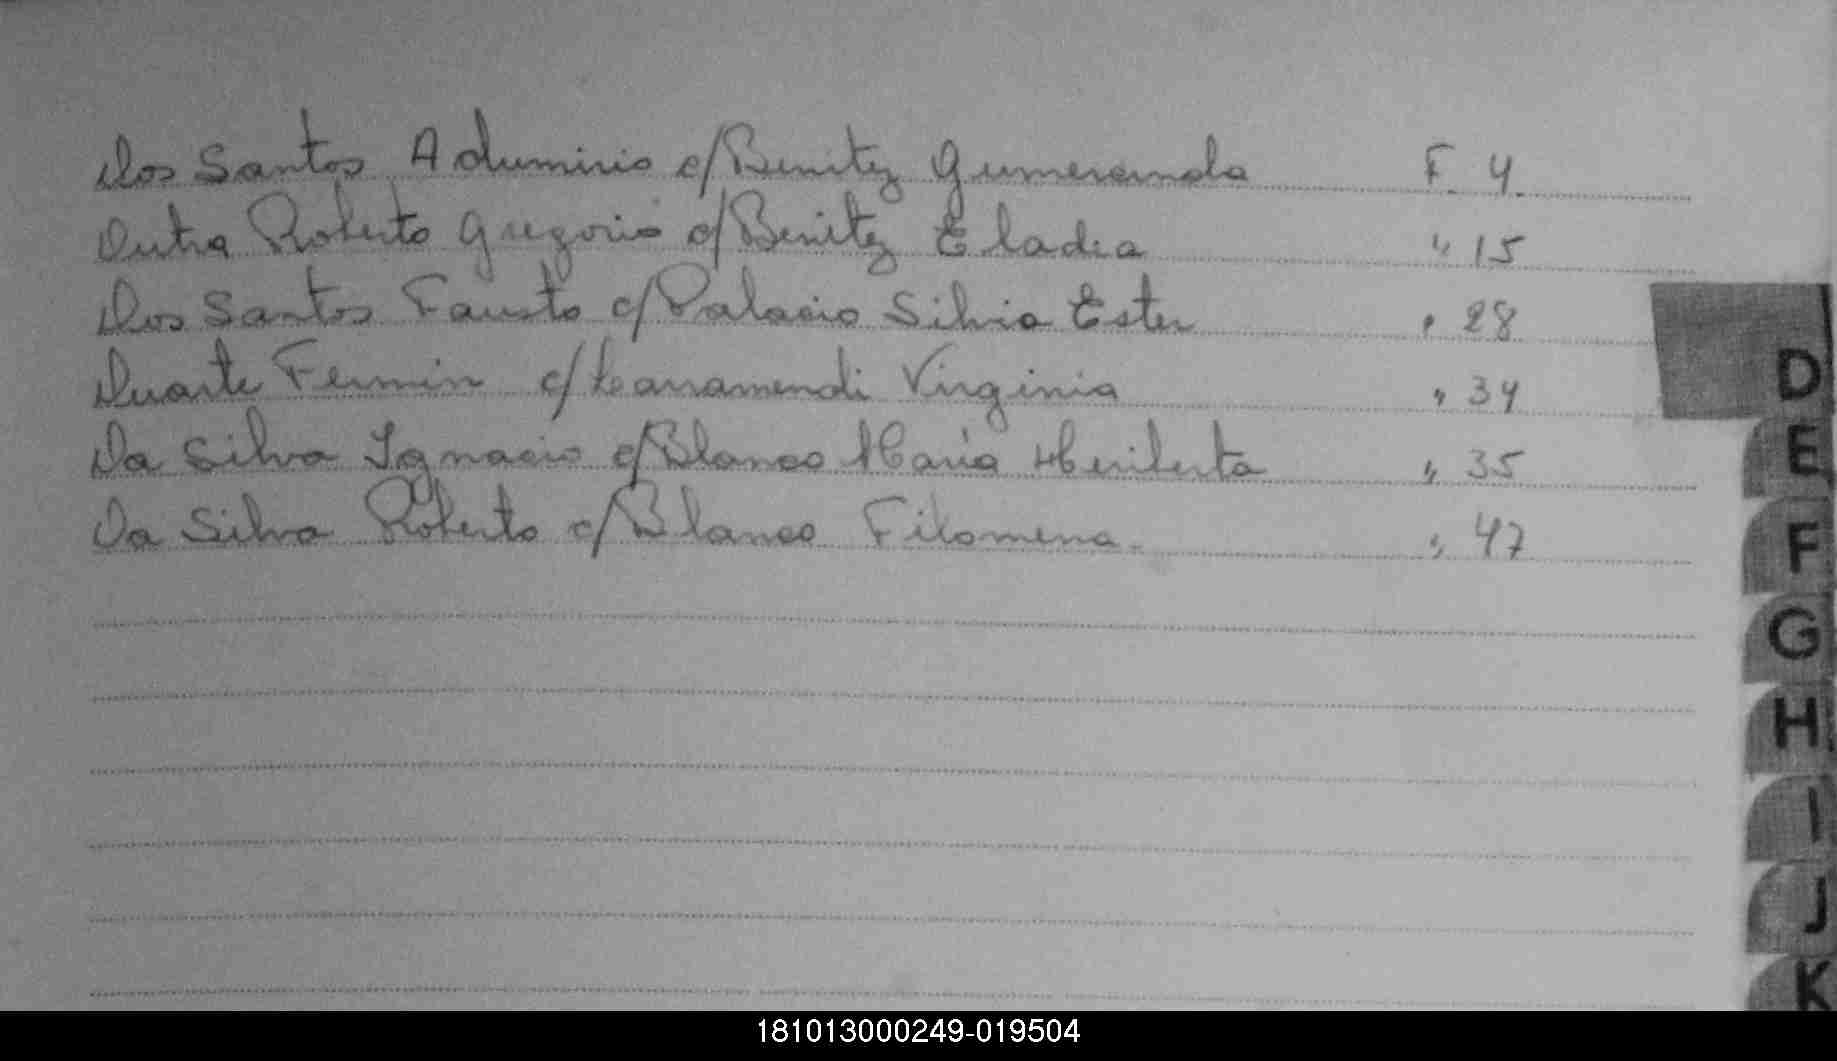 Dos Santos Adumirio c/Benitez Gumersinda F. 4.
Dutra Roberto Gregorio c/Benitez Eladia " 15
Dos Santos Fausto c/Palacio Silvia Ester " 28
Duarte Fermin c/Larramendi Virginia " 34
Da Silva Ignacio c/Blanco María Heriberta " 35
Da Silva Roberto c/Blanco Filomena. " 47
D
E
F
G
H
I
J
K
181013000249-019504